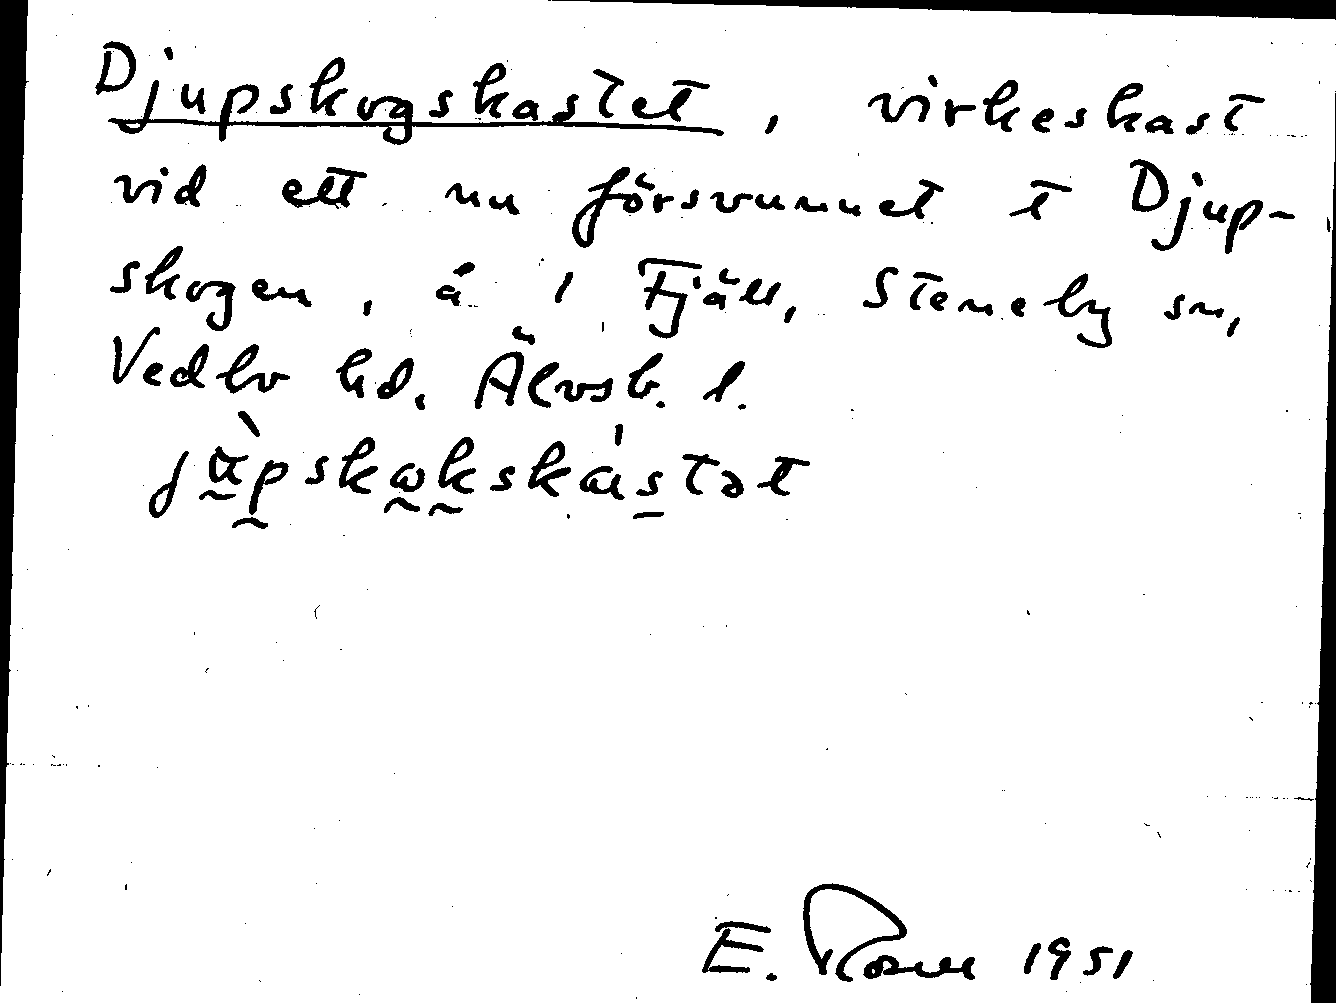 Djupskogskastet, virkeskast
vid ett nu försvunnet t Djup-
skogen, å 1 Fjäll, Steneby sn,
Vedbo hd. Älvsb. l.
E. Rosell 1951